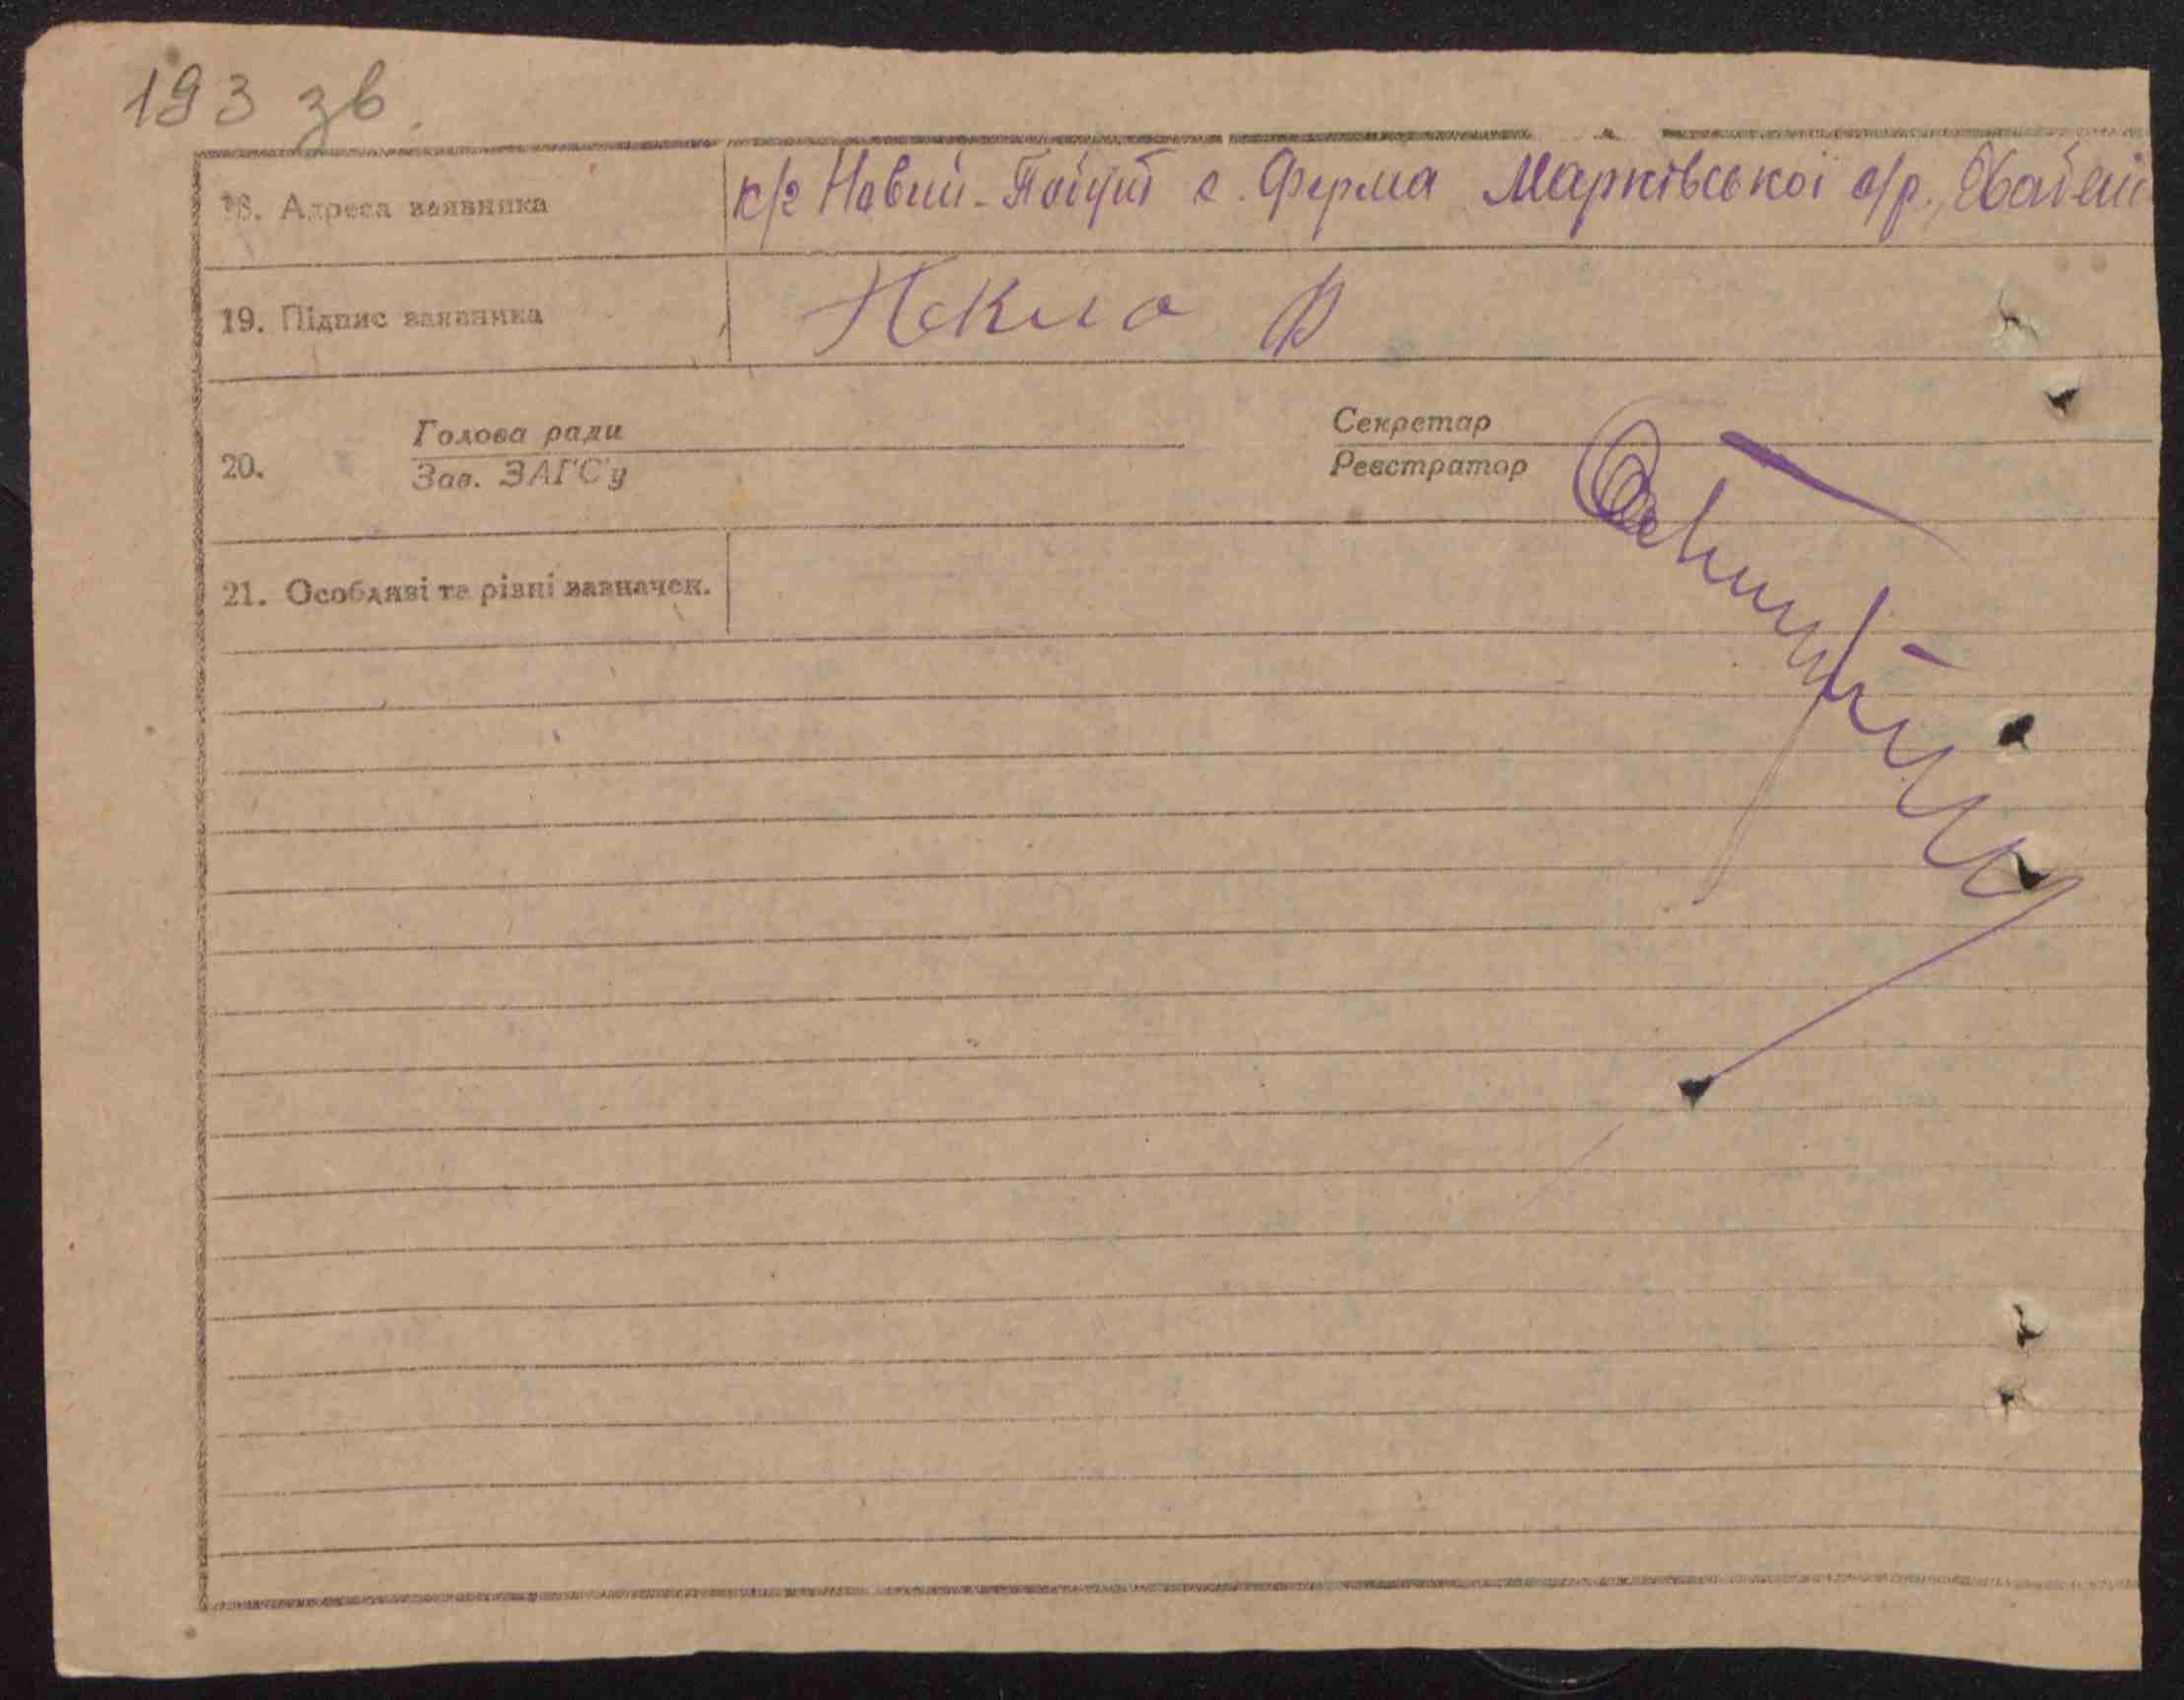 193 зв.
18. Адреса заявника к/г Новий-Побут с. Ферма Марківської с/р.,
19. Підпис заявника Некла
20. Голова ради Секретар
Зав. ЗАГС'у Реєстратор
21. Особливі та різні зазначен.